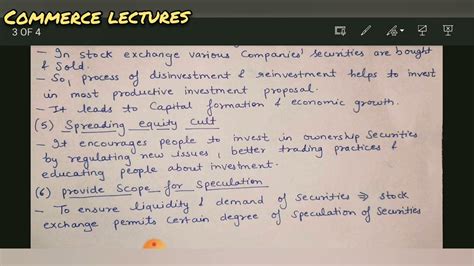 COMMERCE LECTURES
3 OF 4
- In stock exchange various Companies' securities are bought
& Sold.
- So, process of disinvestment & reinvestment helps to invest
in most productive investment proposal.
- It leads to Capital formation & economic growth.
(5) Spreading equity cult
- It encourages people to invest in ownership Securities
by regulating new issues, better trading practices &
educating people about investment.
(6) provide Scope for Speculation
- To ensure liquidity & demand of Securities ⇒ stock
exchange permits certain degree of speculation of Securities